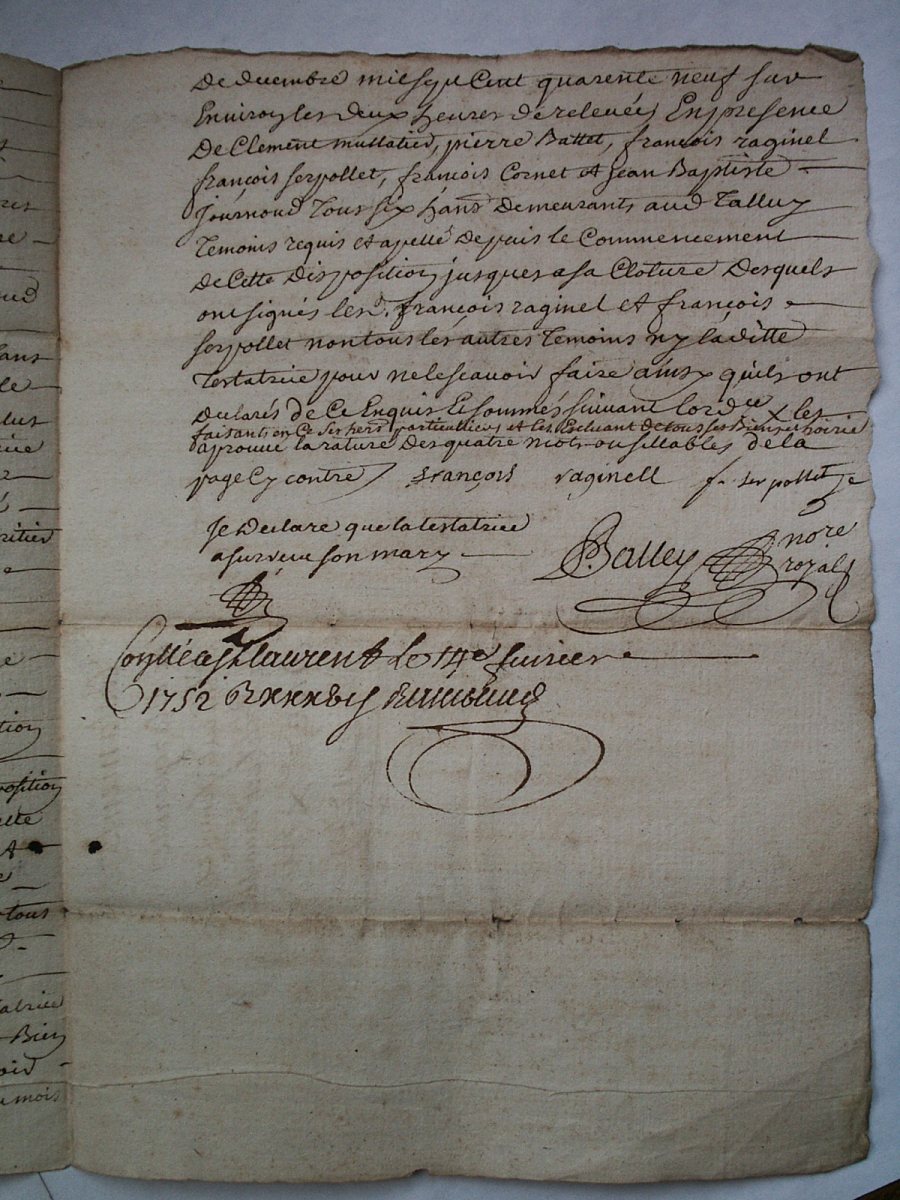 de decembre mil sept Cent quarente neuf sur
Environ les deux heures de relevée, En presence
De Clement mullatier, pierre Battet, françois raginel
françois serpollet, françois Cornet et Jean Baptiste
Journoud Tous six hans demeurants aud Talluy
Temoins requis et apellés Depuis le Commencement
de Cette Disposition jusques a sa Cloture Desquels
ont signés lesd. françois raginel et françois
serpollet non tous les autres Temoins ny laditte
Testatrice pour ne le scavoir faire ainsy quils ont
declarés de Ce Enquis et sommés suivant lordce x les
faisants en Ce Ses herd particullieres et les Excluant de tous ses Biens et hoirie
aprouvé la rature des quatre mots ou sillables de la
page Cy contre françois raginell f. serpollet
Je declare que la testatrice
a survecu son mary
Balley nore
royal
Conllé a St laurent le 14e fuvrier
1752